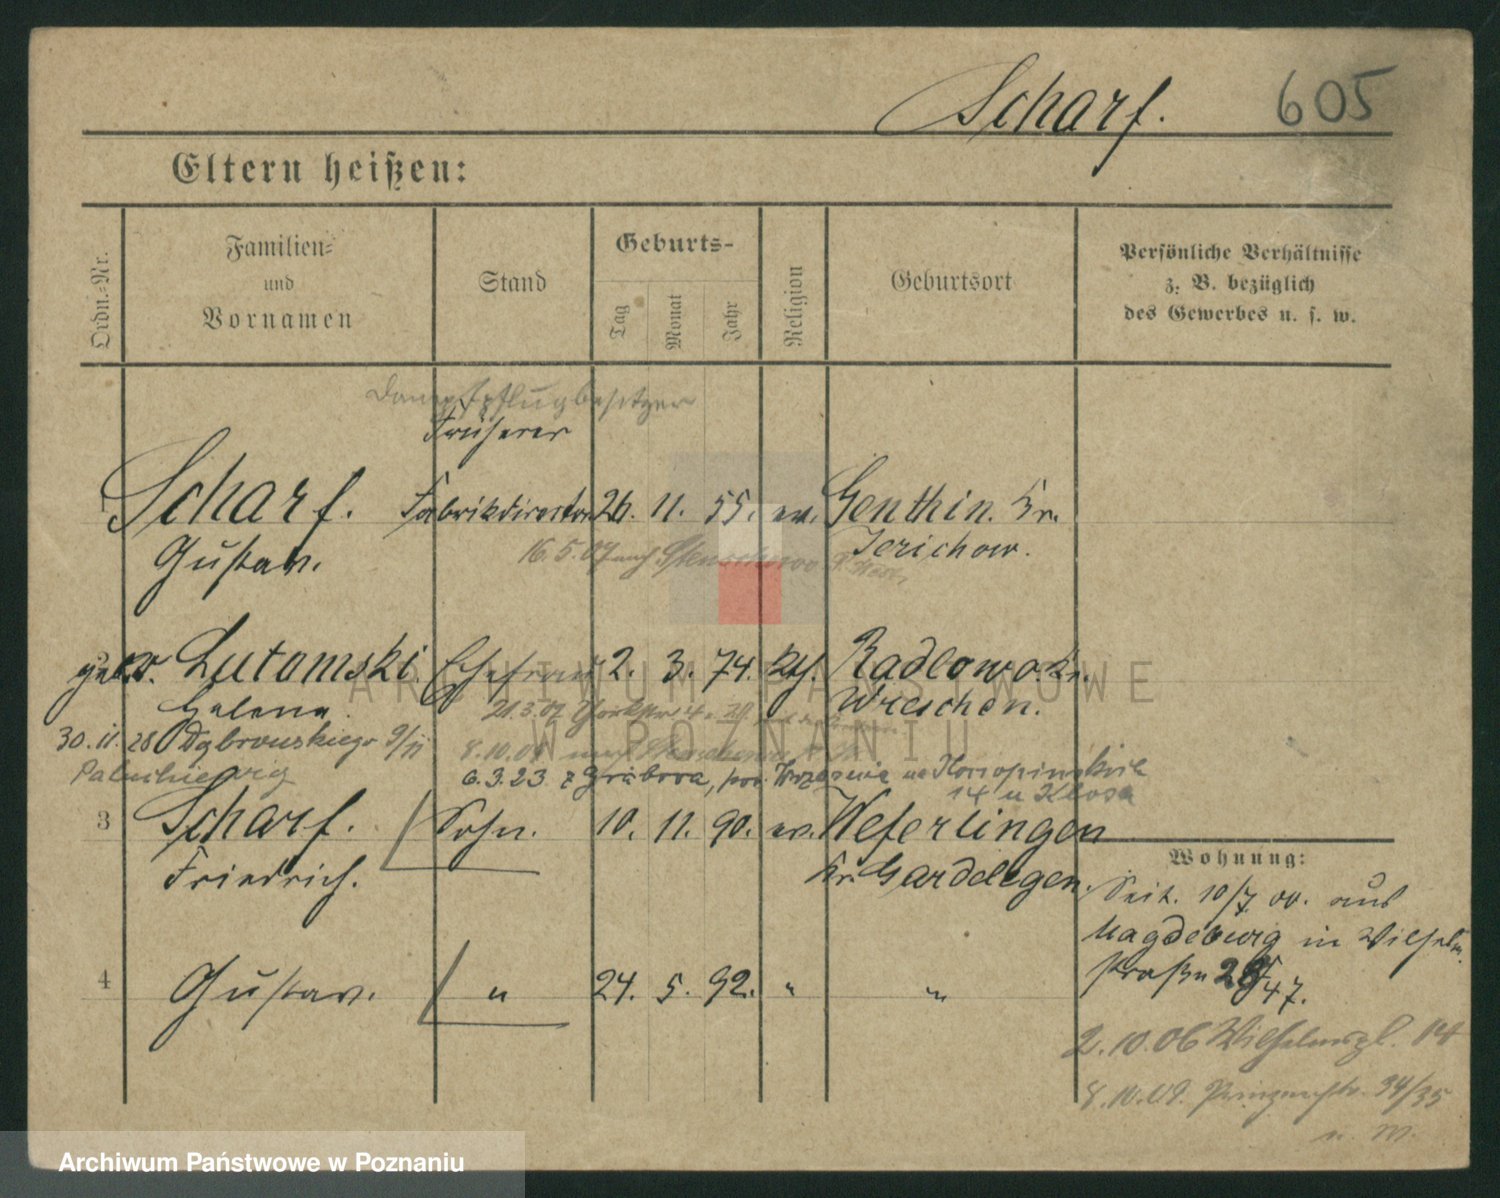 Scharf. 605
Eltern heißen:
Ordn.=Nr.
Familien=
und
Vornamen
Stand
Geburts-
Tag
Monat
Jahr
Religion
Geburtsort
Persönliche Verhältnisse
z. B. bezüglich
des Gewerbes u. s. w.
Dampfpflugbesitzer
Früherer
1 Scharf. Fabrikdirektor 26. 11. 55. ev. Genthin. Kr.
Gustav. Jerichow.
16.5.07 nach
geb. v. Lutomski. Ehefrau 2. 3. 74. kth. Radlowo. Kr.
Helena. Wreschen.
21.3.07
30.11.28 Dąbrowskiego 9/11 8.10.09 nach
6.3.23 z Grabowa, pow. Września
14 u Klosa
3 Scharf. Sohn. 10. 11. 90. ev. Weferlingen
Friedrich. Kr. Gardelegen.
4 Gustav. " 24. 5. 92. " "
Wohnung:
Seit. 10/7. 00. aus
Magdeburg in Wilhelm
straße 47.
2.10.06 Wilhelmspl. 14
8.10.09. 34/35
ARCHIWUM PAŃSTWOWE
W POZNANIU
Archiwum Państwowe w Poznaniu